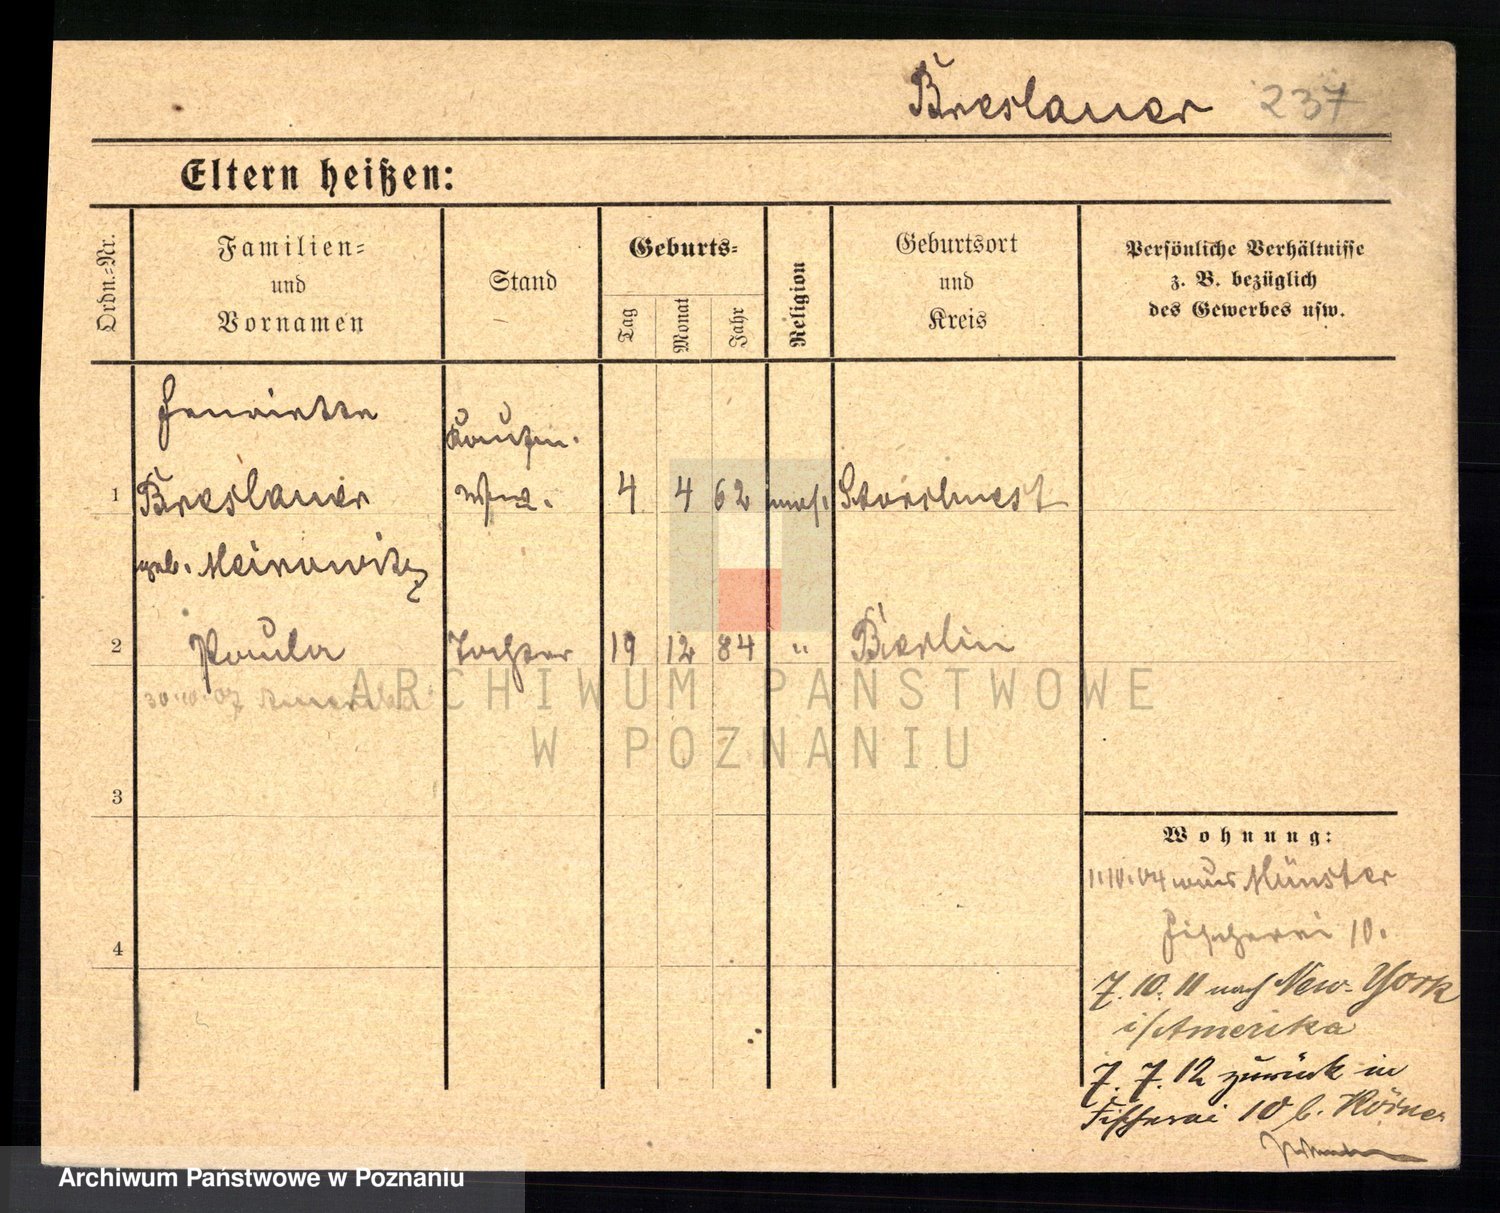 Breslauer 237
Eltern heißen:
Ordn.-Nr.
Familien-
und
Vornamen
Stand
Geburts-
Tag
Monat
Jahr
Religion
Geburtsort
und
Kreis
Persönliche Verhältnisse
z. B. bezüglich
des Gewerbes usw.
Henriette
Kaufm.
1 Breslauer ww. 4 4 62 mos. Storchnest
geb. Meirowitz
2 Paula Tochter 19 12 84 " Berlin
30.10.07 Amerika
ARCHIWUM PAŃSTWOWE
W POZNANIU
3
4
Wohnung:
1.10.04 aus Münster
Fischerei 10.
7. 10. 11 nach New-York
i/Amerika
7. 7. 12 zurück in
Fischerei 10 b. Körner
Archiwum Państwowe w Poznaniu